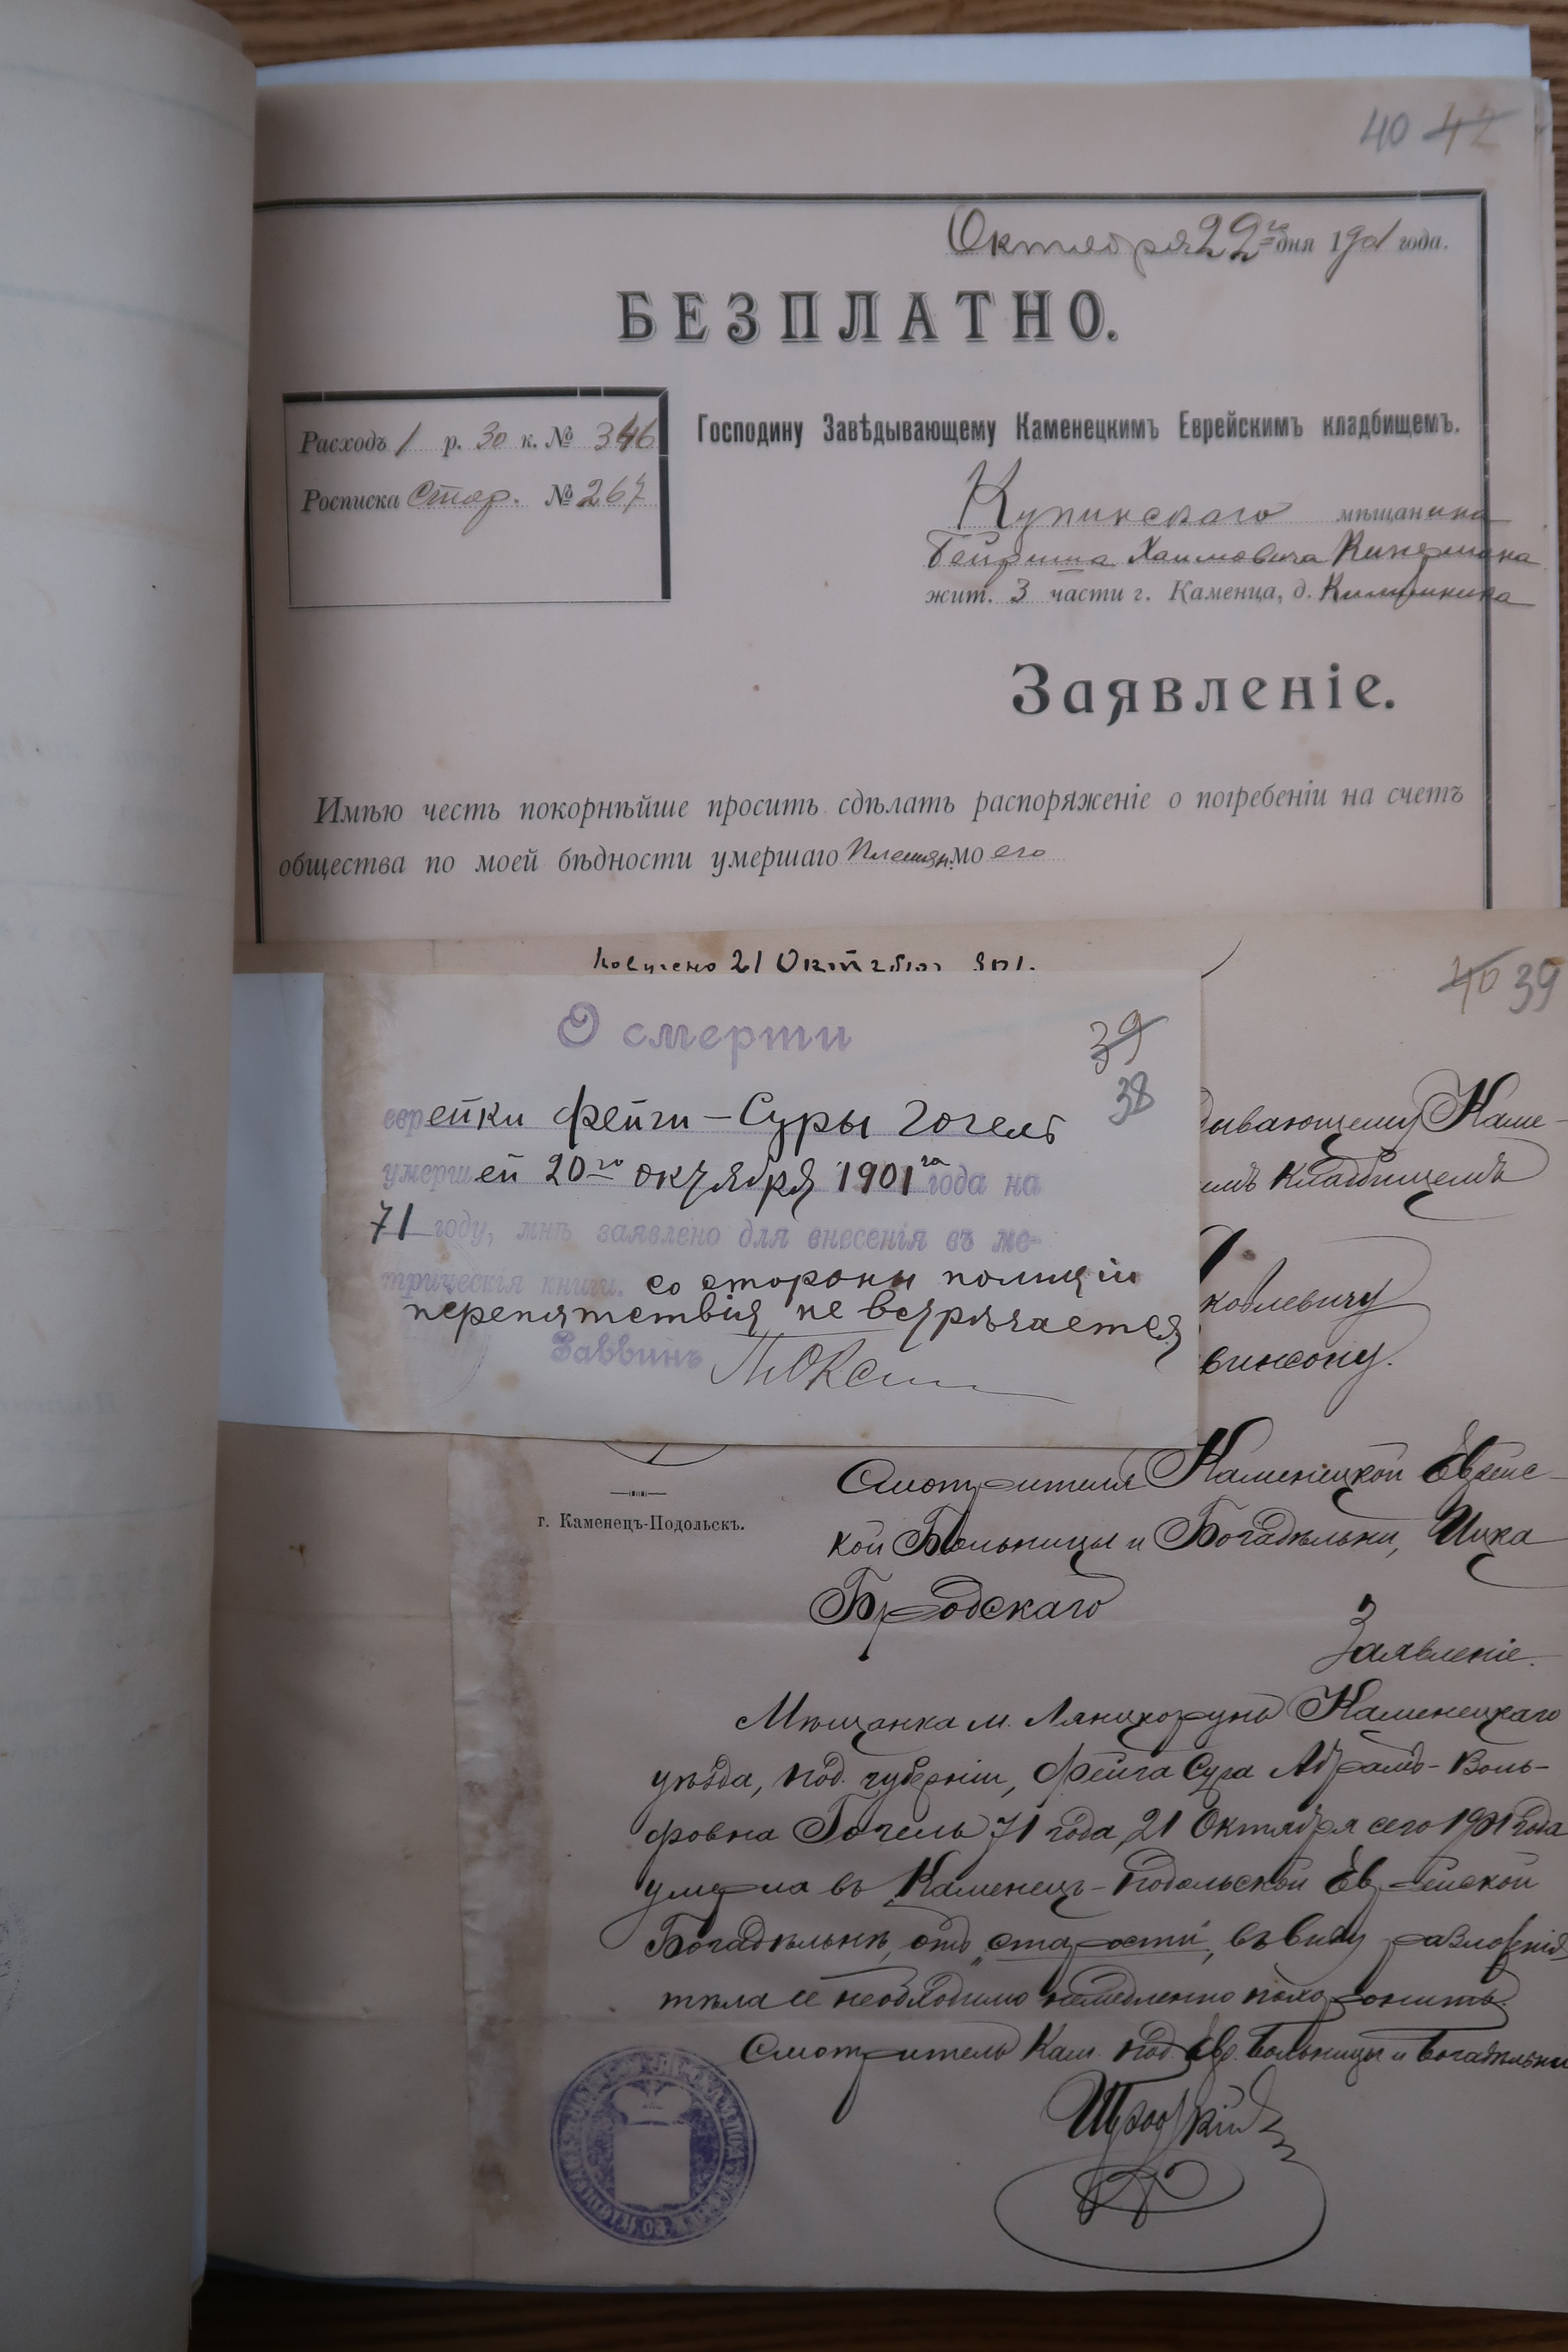 40 42
Октября 22го дня 1901 года.
БЕЗПЛАТНО.
Расходъ 1 р. 30 к. № 346
Росписка Стар. № 267
Господину Завѣдывающему Каменецкимъ Еврейскимъ кладбищемъ.
Купинскаго мѣщанина
Хаимовича
жит. 3 части г. Каменца, д.
Заявленіе.
Имѣю честь покорнѣйше просить сдѣлать распоряженіе о погребеніи на счетъ
общества по моей бѣдности умершаго Племян. мо его
Получено 21 Октября 901.
40 39
О смерти
39
38
еврейки Фейги-Суры Гогель
умершей 20го октября 1901го года на
71 году, мнѣ заявлено для внесенія въ ме-
трическія книги. со стороны полиціи
перепятствія не встрѣчается
Раввинъ
дывающему Каме-
имъ Кладбищемъ
ковлевичу
винзону.
г. Каменецъ-Подольскъ.
Смотрителя Каменецкой Еврейс-
кой Больницы и Богадѣльни, Ицка
Бродскаго
Заявленіе.
Мѣщанка м. Лянцкорунь Каменецкаго
уѣзда, Под. губерніи, Фейга Сура Абрамъ-Воль-
фовна Гогель 71 года, 21 Октября сего 1901 года
умерла въ Каменецъ-Подольской Еврейской
Богадѣльнѣ, отъ „старости", въ виду разложенія
тѣла ее необходимо немедленно похоронить.
Смотритель Кам. Под. Евр. Больницы и Богадѣльни